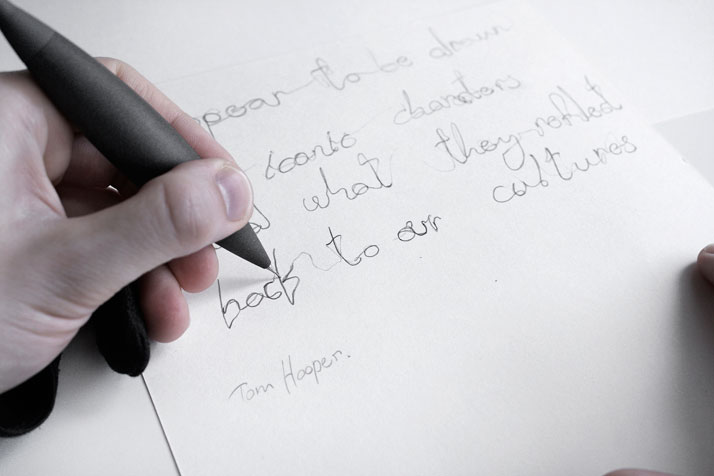 pear to be drawn
iconic characters
what they reflect
back to our cultures
Tom Hooper.